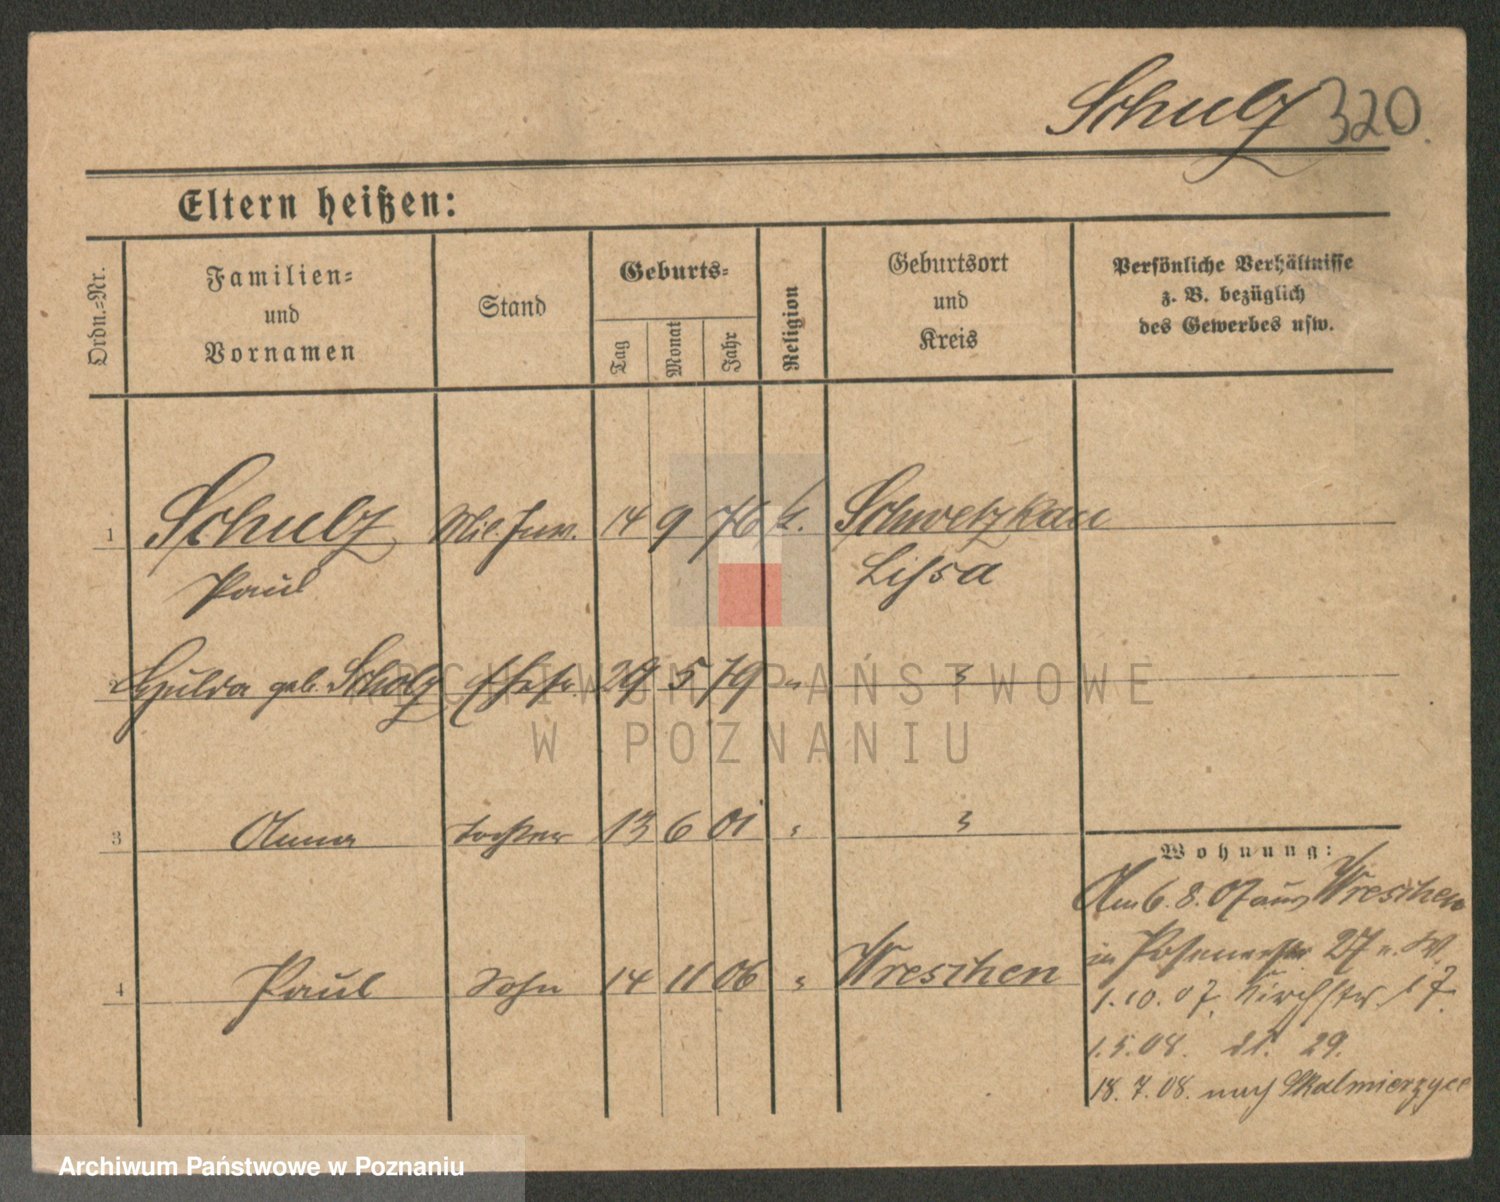 Schulz 320
Eltern heißen:
Ordn.=Nr.
Familien=
und
Vornamen
Stand
Geburts=
Tag
Monat
Jahr
Religion
Geburtsort
und
Kreis
Persönliche Verhältnisse
z. B. bezüglich
des Gewerbes usw.
1 Schulz Mil. Inv. 14 9 76 k. Schwetzkau
Paul Lissa
2 Hulda geb. Scholz Ehefr. 29 5 79 "
3 Anna Tochter 13 6 01 "
4 Paul Sohn 14 11 06 " Wreschen
Wohnung:
Am 6. 8. 07 aus Wreschen
in Posenerstr 27 v. W.
1. 10. 07. Kirchstr. 17.
1. 5. 08. dt. 29.
18. 7. 08. nach Skalmierzyce
ARCHIWUM PAŃSTWOWE
W POZNANIU
Archiwum Państwowe w Poznaniu